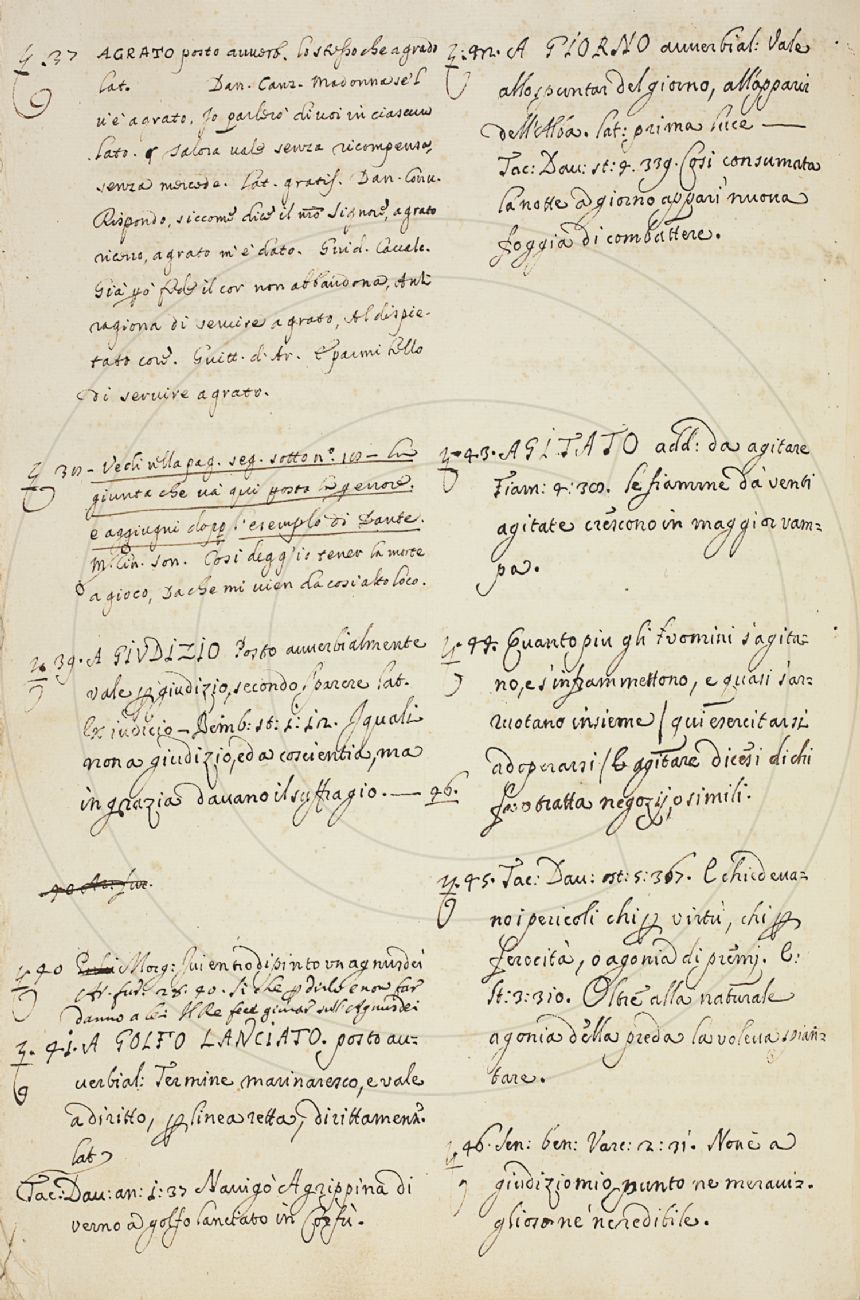 37 AGRATO posto avverb. lo stesso che a grado
lat. Dan. Canz. Madonna se'l
v'è a grato, Io parlerò di voi in ciascun
lato. Talora vale senza ricompensa,
senza mercede. Lat. gratis. Dan. Conv.
Rispondo, siccome dice il nr̃o Signore, a grato
ricevo, a grato m'è dato. Guid. Cavalc.
Già p̱ò fede il cor non abbandona, Anti
ragiona di servire a grato, Al dispie-
tato core. Guitt. d'Ar. E parmi bello
di servire a grato.
38 - Vedi nella pag. seg. sotto n.º - la
giunta che va qui posta
e aggiugni dopo l'esemplo di Dante.
M. Cin. son. Così degg'io tener la morte
a gioco, Da che mi vien da così alto loco.
39. A GIVDIZIO Posto avverbialmente
vale p̱ giudizio, secondo 'l parere lat.
Ex iudicio - Bemb: st: 1: 12. I quali
non a giudizio, ed a coscientia, ma
in grazia davano il suffragio. — 46.
40 Ar: fur.
40 Morg: fuientro dipinto un agnusdei
Ar. fur. 28. 40. Si che p̱ dirlo e non far
danno a lei Il Re fece giurar sull'Agnusdei
41. A GOLFO LANCIATO. posto av-
verbial: Termine marinaresco, e vale
a diritto, p̱ linea retta, dirittamen:
lat
Tac: Dav: an: 1: 37 Navigò Agrippina di
verno a golfo lanciato in Corfù.
42. A GIORNO avverbial: Vale
allo spuntar del giorno, all'apparir
dell'Alba. lat: prima luce —
Tac: Dav: st: 4. 339. Così consumata
la notte a giorno apparì nuova
foggia di combattere.
43. AGITATO add: da agitare
Fiam: 4: 30. le fiamme da venti
agitate crescono in maggior vam=
pa.
44. Quanto più gli huomini s'agita=
no, e s'inframmettono, e quasi s'ar=
ruotano insieme / qui esercitarsi
adoperarsi / E agitare dicesi di chi
fa o tratta negozij, o simili.
45. Tac: Dav: st: 5: 367. E chiedeva=
no i pericoli chi p̱ virtù, chi p̱
ferocità, o agonia di premj. E:
st: 3: 310. Oltre alla naturale
agonia della preda la voleva spian=
tare.
46. Sen: ben: Varc: 2: 31. Non è a
giudizio mio punto ne meravi=
glioso nè 'ncredibile.